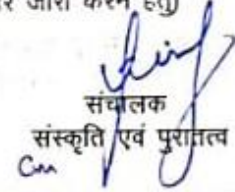 र जारी करने हेतु)
संचालक
संस्कृति एवं पुरातत्व